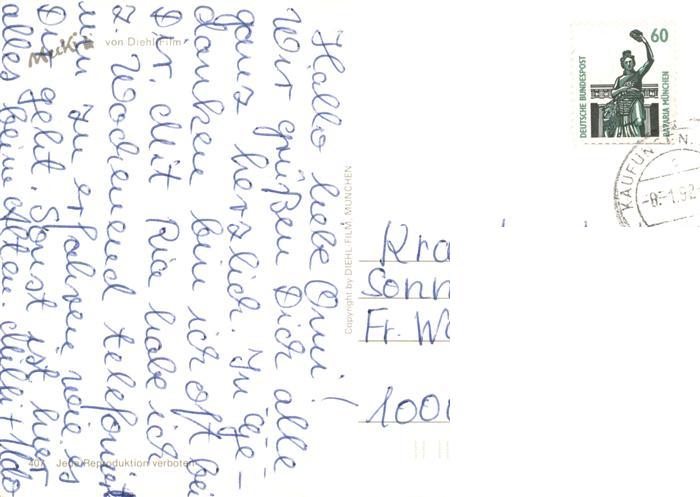 Hallo liebe Omi!
Wir grüßen Dich alle
ganz herzlich. In Ge-
danken bin ich oft bei
Dir. Mit Ria habe ich
z. Wochenend telefoniert
um zu erfahren wie es
Dir geht. Sonst ist hier
alles beim Alten. + Udo
Mecki
von Diehl-Film
407 Jede Reproduktion verboten
Copyright by DIEHL-FILM, MÜNCHEN
60
DEUTSCHE BUNDESPOST
BAVARIA MÜNCHEN
KAUFUN
Kra
Sonn
Fr.
100